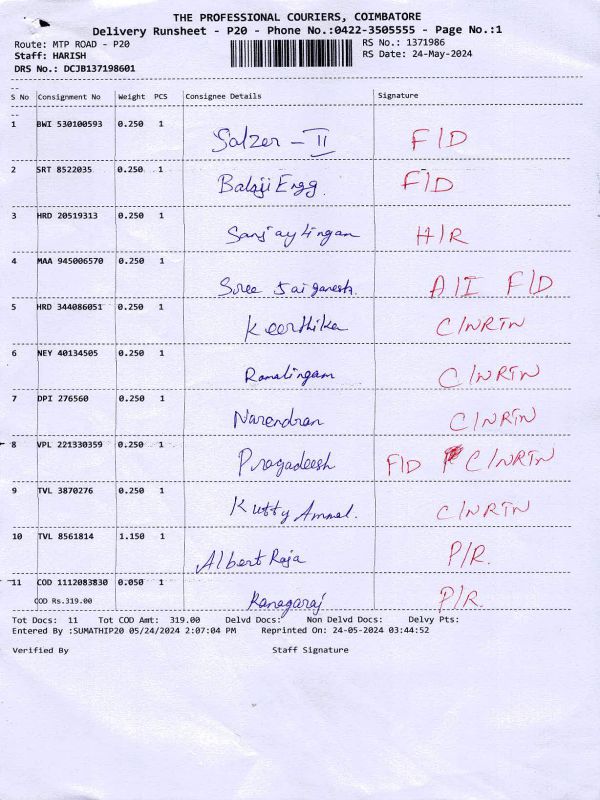 THE PROFESSIONAL COURIERS, COIMBATORE
Delivery Runsheet - P20 - Phone No.:0422-3505555 - Page No.:1
Route: MTP ROAD - P20
RS No.: 1371986
Staff: HARISH
RS Date: 24-May-2024
DRS No.: DCJB137198601
S No Consignment No Weight PCS Consignee Details Signature
1 BWI 530100593 0.250 1 Salzer - II F/D
2 SRT 8522035 0.250 1 Balaji Engg. F/D
3 HRD 20519313 0.250 1 Sanjaylingam H/R
4 MAA 945006570 0.250 1 Sree Jai ganesh. A/I F/D
5 HRD 344086051 0.250 1 Keerthika C/NRTN
6 NEY 40134505 0.250 1 Ramalingam C/NRTN
7 DPI 276560 0.250 1 Narendran C/NRTN
8 VPL 221330359 0.250 1 Pragadeesh F/D C/NRTN
9 TVL 3870276 0.250 1 Kutty Ammal. C/NRTN
10 TVL 8561814 1.150 1 Albert Raja P/R.
11 COD 1112083830 0.050 1 Kanagaraj P/R.
COD Rs.319.00
Tot Docs: 11 Tot COD Amt: 319.00 Delvd Docs: Non Delvd Docs: Delvy Pts:
Entered By :SUMATHIP20 05/24/2024 2:07:04 PM Reprinted On: 24-05-2024 03:44:52
Verified By Staff Signature